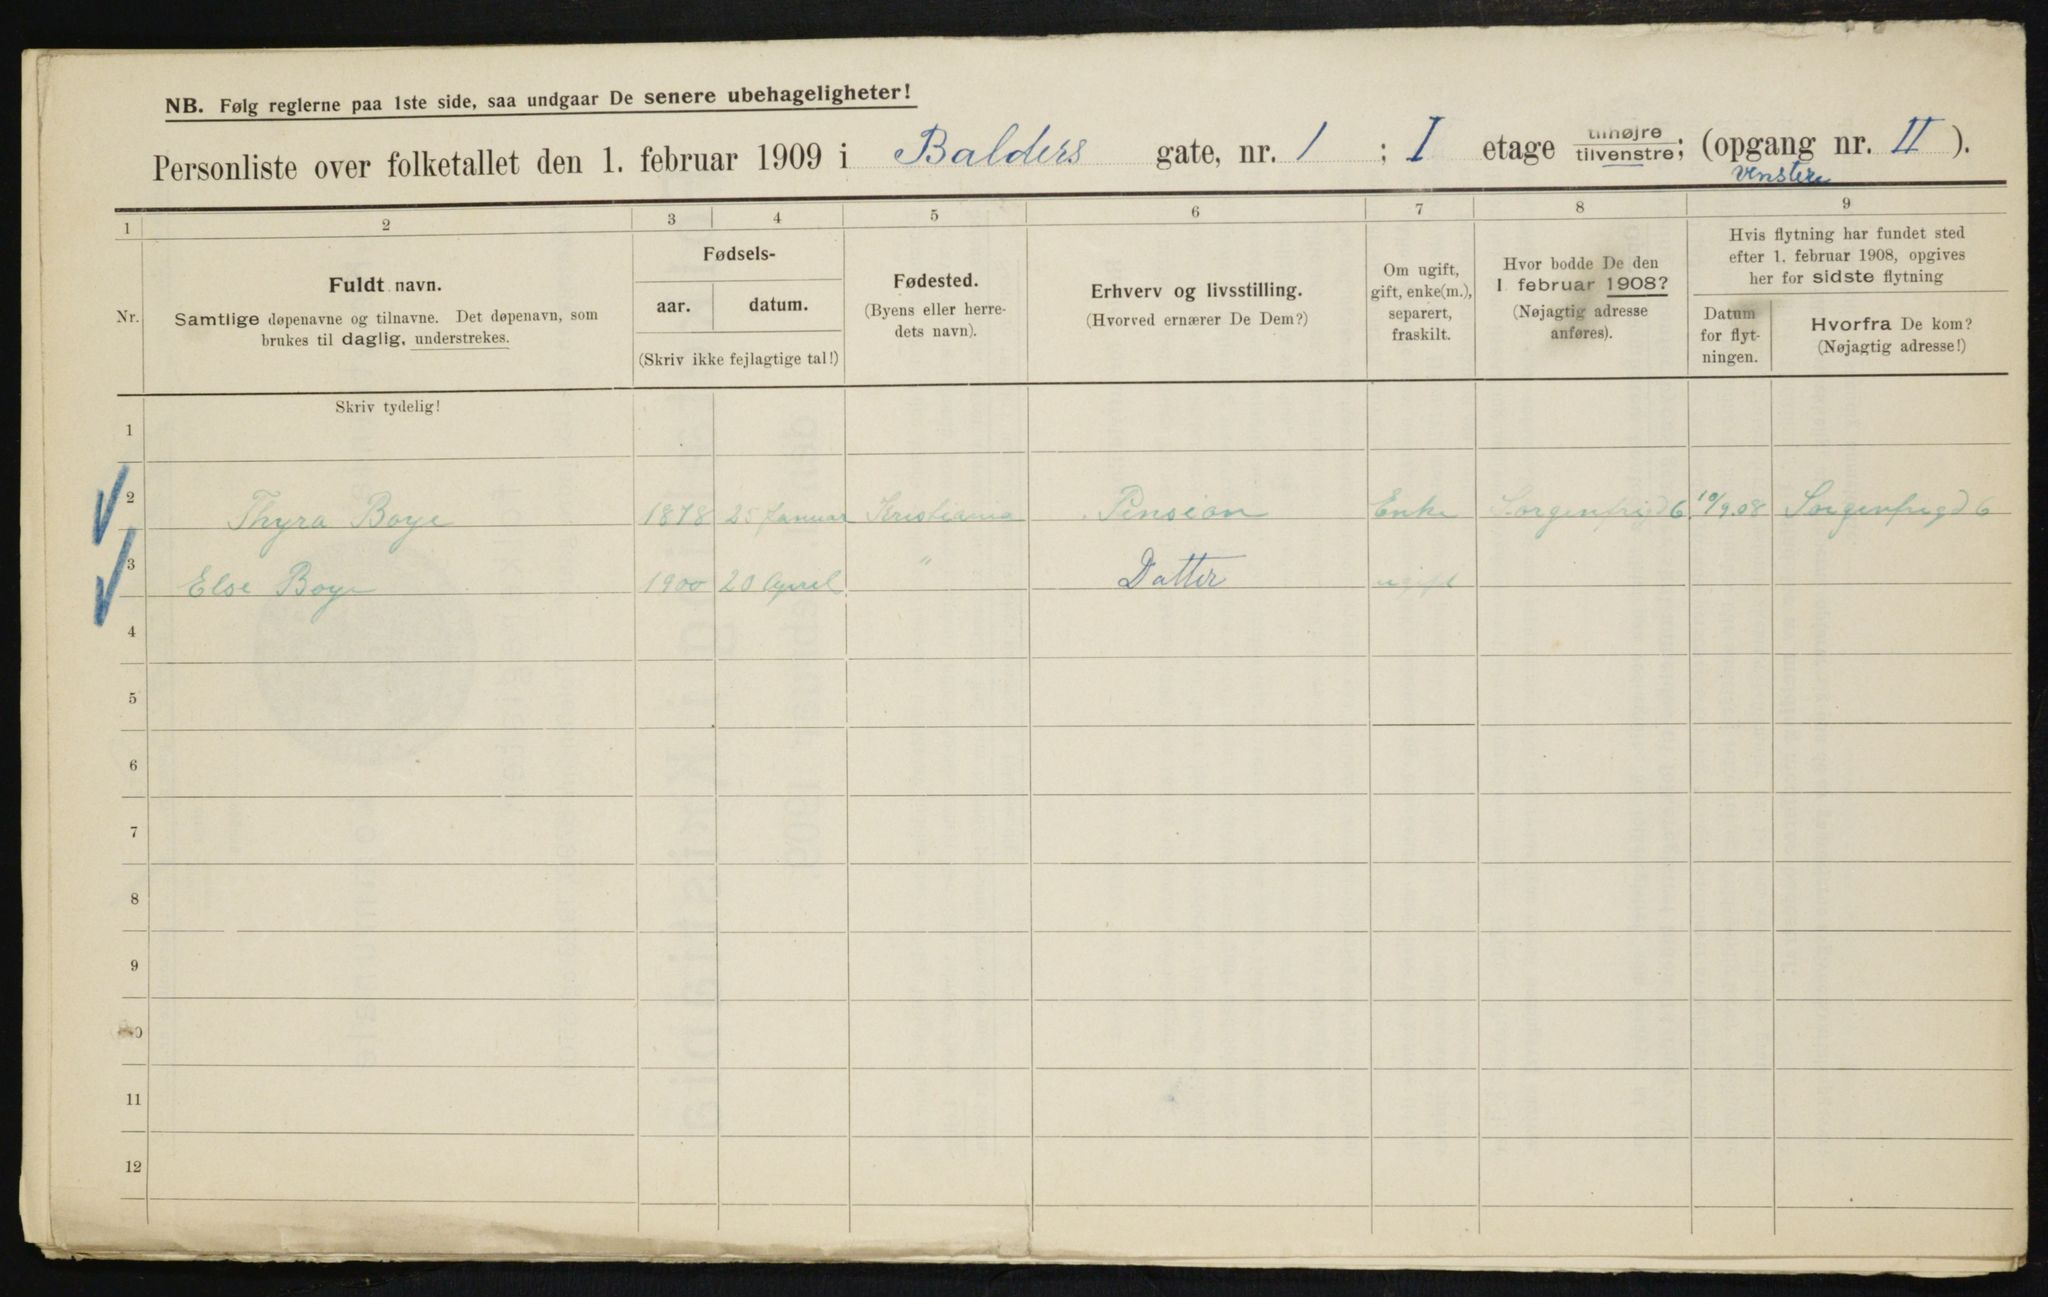 NB. Følg reglerne paa 1ste side, saa undgaar De senere ubehageligheter!
Personliste over folketallet den 1. februar 1909 i Balders gate, nr. 1 ; I etage tilhøjre tilvenstre; (opgang nr. II ).
venstre
1 2 3 4 5 6 7 8 9
Nr.
Fuldt navn.
Samtlige døpenavne og tilnavne. Det døpenavn, som
brukes til daglig, understrekes.
Fødsels-
aar. datum.
(Skriv ikke fejlagtige tal!)
Fødested.
(Byens eller herre-
dets navn).
Erhverv og livsstilling.
(Hvorved ernærer De Dem?)
Om ugift,
gift, enke(m.),
separert,
fraskilt.
Hvor bodde De den
1 februar 1908?
(Nøjagtig adresse
anføres).
Hvis flytning har fundet sted
efter 1. februar 1908, opgives
her for sidste flytning
Datum
for flyt-
ningen.
Hvorfra De kom?
(Nøjagtig adresse!)
Skriv tydelig!
1
2 Thyra Boye 1878 25 Januar Kristiania Pension Enke Sorgenfrigd 6 10/9.08 Sorgenfrigd 6
3 Else Boye 1900 20 April " Datter ugift
4
5
6
7
8
9
10
11
12